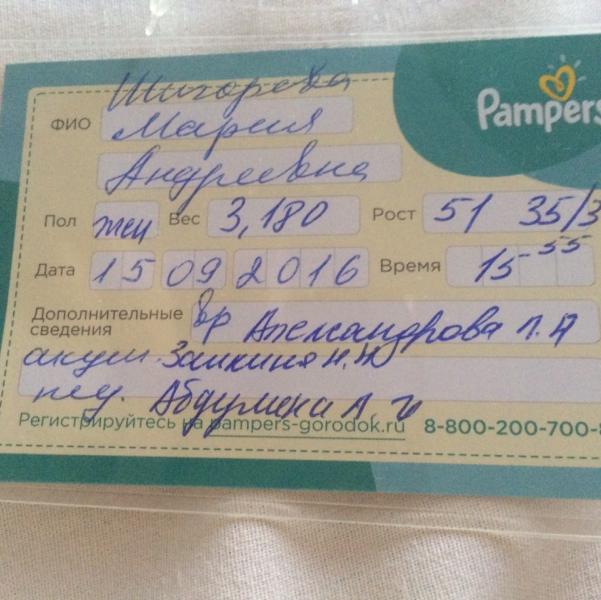 Pampers
Шигорева
ФИО Мария
Андреевна
Пол жен Вес 3,180 Рост 51 35/3
Дата 15 09 2016 Время 15 55
Дополнительные сведения вр Александрова Л. А
акуш. Заикина Н.Н
Абдулина А
Регистрируйтесь на pampers-gorodok.ru 8-800-200-700-